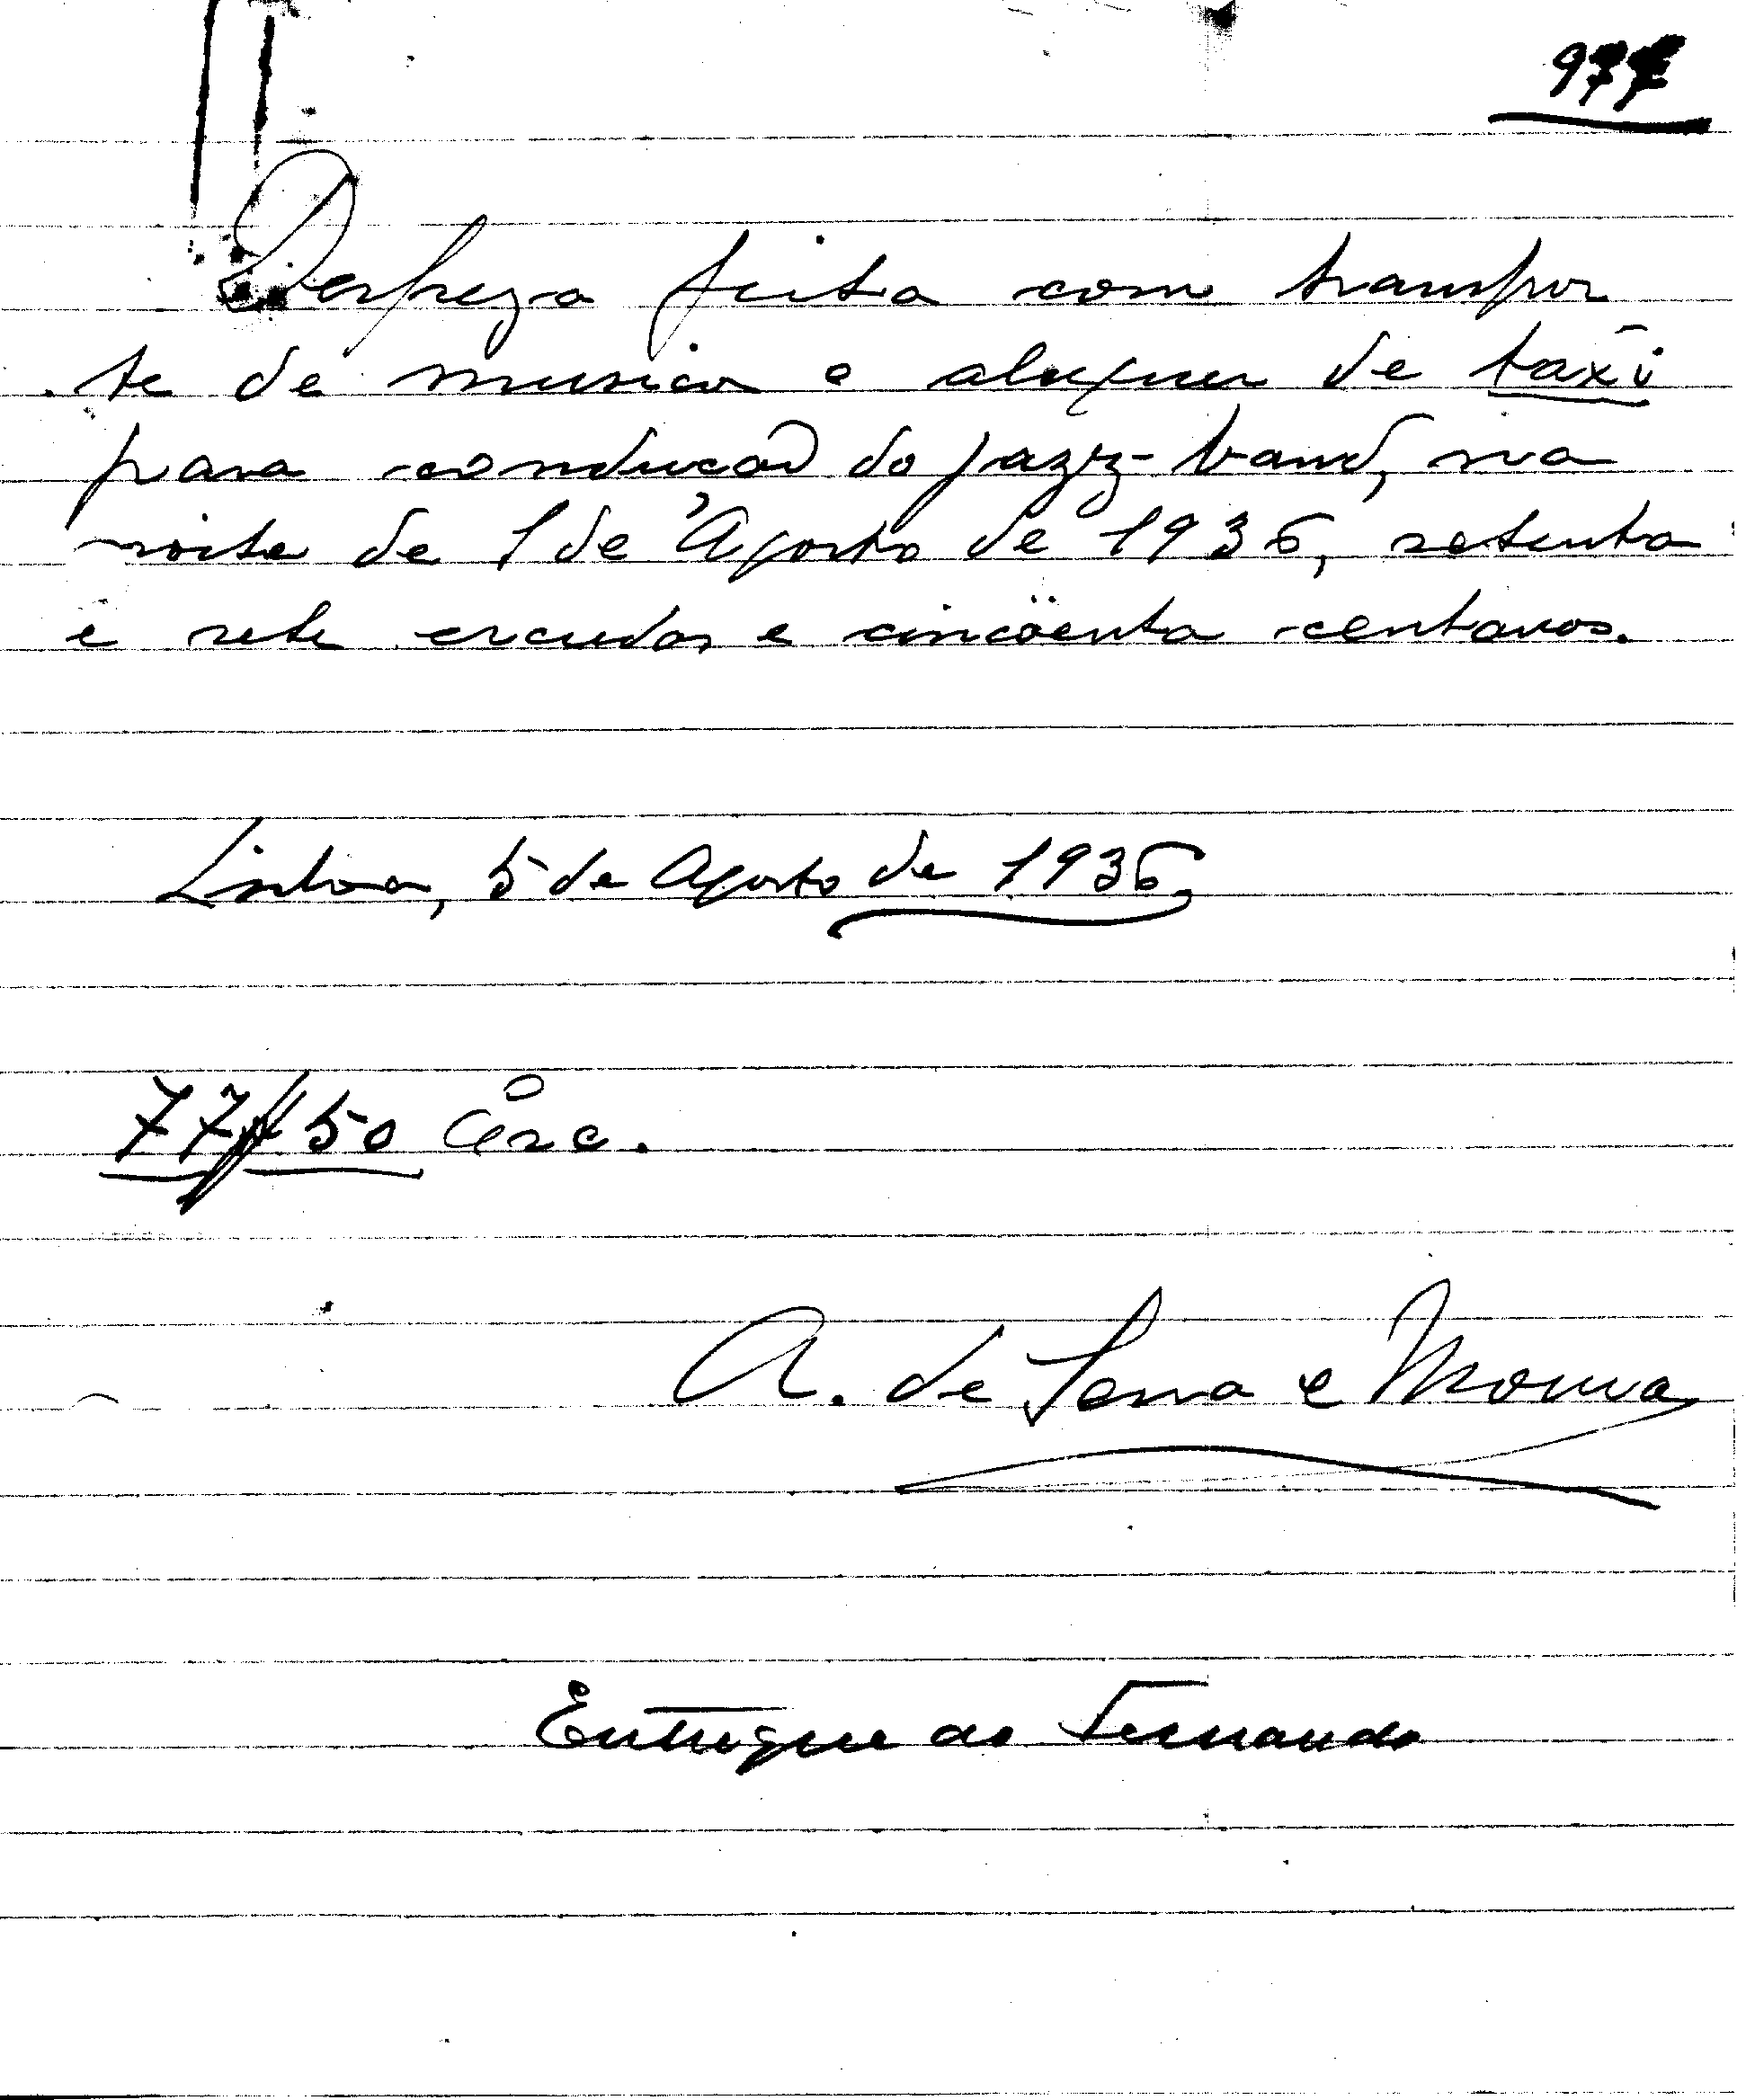 977
Despeza feita com transpor
te de musica e aluguer de taxi
para conducaõ do jazz-band, na
noite de 1 de Agosto de 1936, setenta
e sete escudos e cincöenta centavos.
Lisboa, 5 de Agosto de 1936,
77$50
A. de Sena e Moura
Entregue ao Fernando